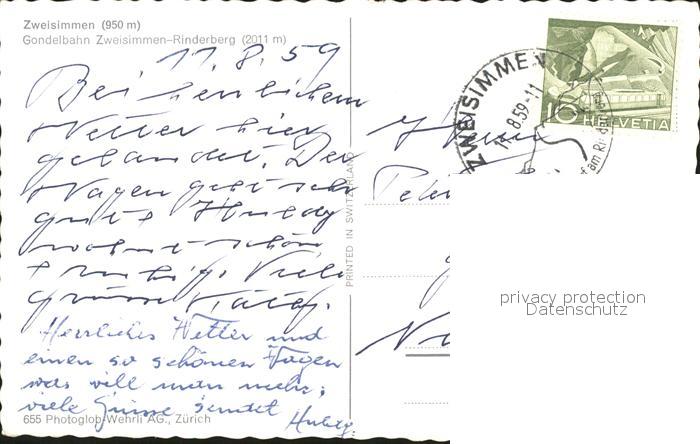 Zweisimmen (950 m)
Gondelbahn Zweisimmen-Rinderberg (2011 m)
11.8.59
Bei herrlichem
Wetter hier
gelandet. Der
Wagen geht sehr
gut +
wohnt schön
+ ruhig. Viele
Grüsse
Herrliches Wetter und
einen so schönen Wagen
was will man mehr;
viele Grüsse sendet
655 Photoglob-Wehrli AG., Zürich
PRINTED IN SWITZERLAND
ZWEISIMMEN
11.8.59-11
am Rinderb
10
HELVETIA
privacy protection
Datenschutz